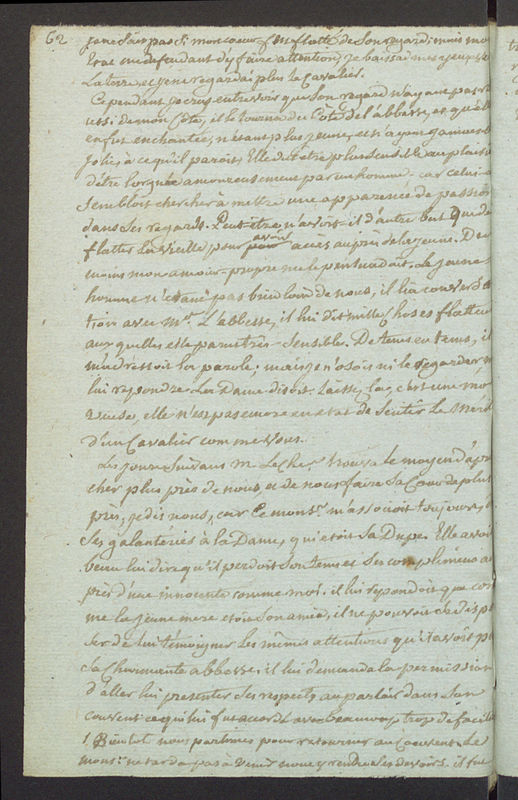 62
je ne sais pas si mon coeur fut flatté de son regard; mais mo
me defendant d'y faire attention, je baissai mes yeux
La terre, et je ne regardai plus le Cavalier.
Cependant je crus entrevoir que son regard n'ayant pas r
ussi de mon Côté, il le tourna du Côté de l'abbesse, et qu'elle
en fut enchantée, n'etant plus jeune, et n'ayant jamais
jolie, à ce qu'il parait, Elle dut etre plus sensible au plaisir
d'être lorgnée amoureusement par un homme. car celui-
sembloit chercher à mettre une apparence de passion
dans ses regards. Peut-etre n'avoit-il d'autre but que de
flatter La vieille, pour avoir accès auprès de la jeune. Du
moins mon amour-propre me le persuadoit. Le jeune
homme n'etant pas bien loin de nous, il lia conversa
tion avec Mme L'abbesse, il lui dit mille choses flatteu
auxquelles elle parut très-sensible. De tems en tems, il
m'adressoit la parole; mais je n'osois ni le regarder n
lui repondre. La Dame disoit. Laissez la, c'est une mor
veuse, elle n'est pas encore en etat de sentir le Meri
d'un Cavalier comme Vous.
Les jours suivans M. Le Cher trouva le moyen d'apr
cher plus près de nous, et de nous faire sa Cour de plus
près, je dis nous, car Ce monsr m'associoit toujours
ses galanteries à la Dame, qui etoit sa Dupe. Elle avoit
beau lui dire qu'il perdoit son tems et ses complimens a
près d'une innocente comme moi. il lui repondoit que com
me la jeune mere etoit son amie, il ne pouvoit se disp
ser de lui témoigner les mêmes attentions qu'il avoit po
sa Charmante abbesse. il lui demanda la permission
d'aller lui presenter ses respects au parloir dans son
couvent ce qui lui fut accordé avec beaucoup trop de facili
Bientot nous partimes pour retourner au Couvent. Le
monsr ne tarda pas à venir nous y rendre ses devoirs. il fut